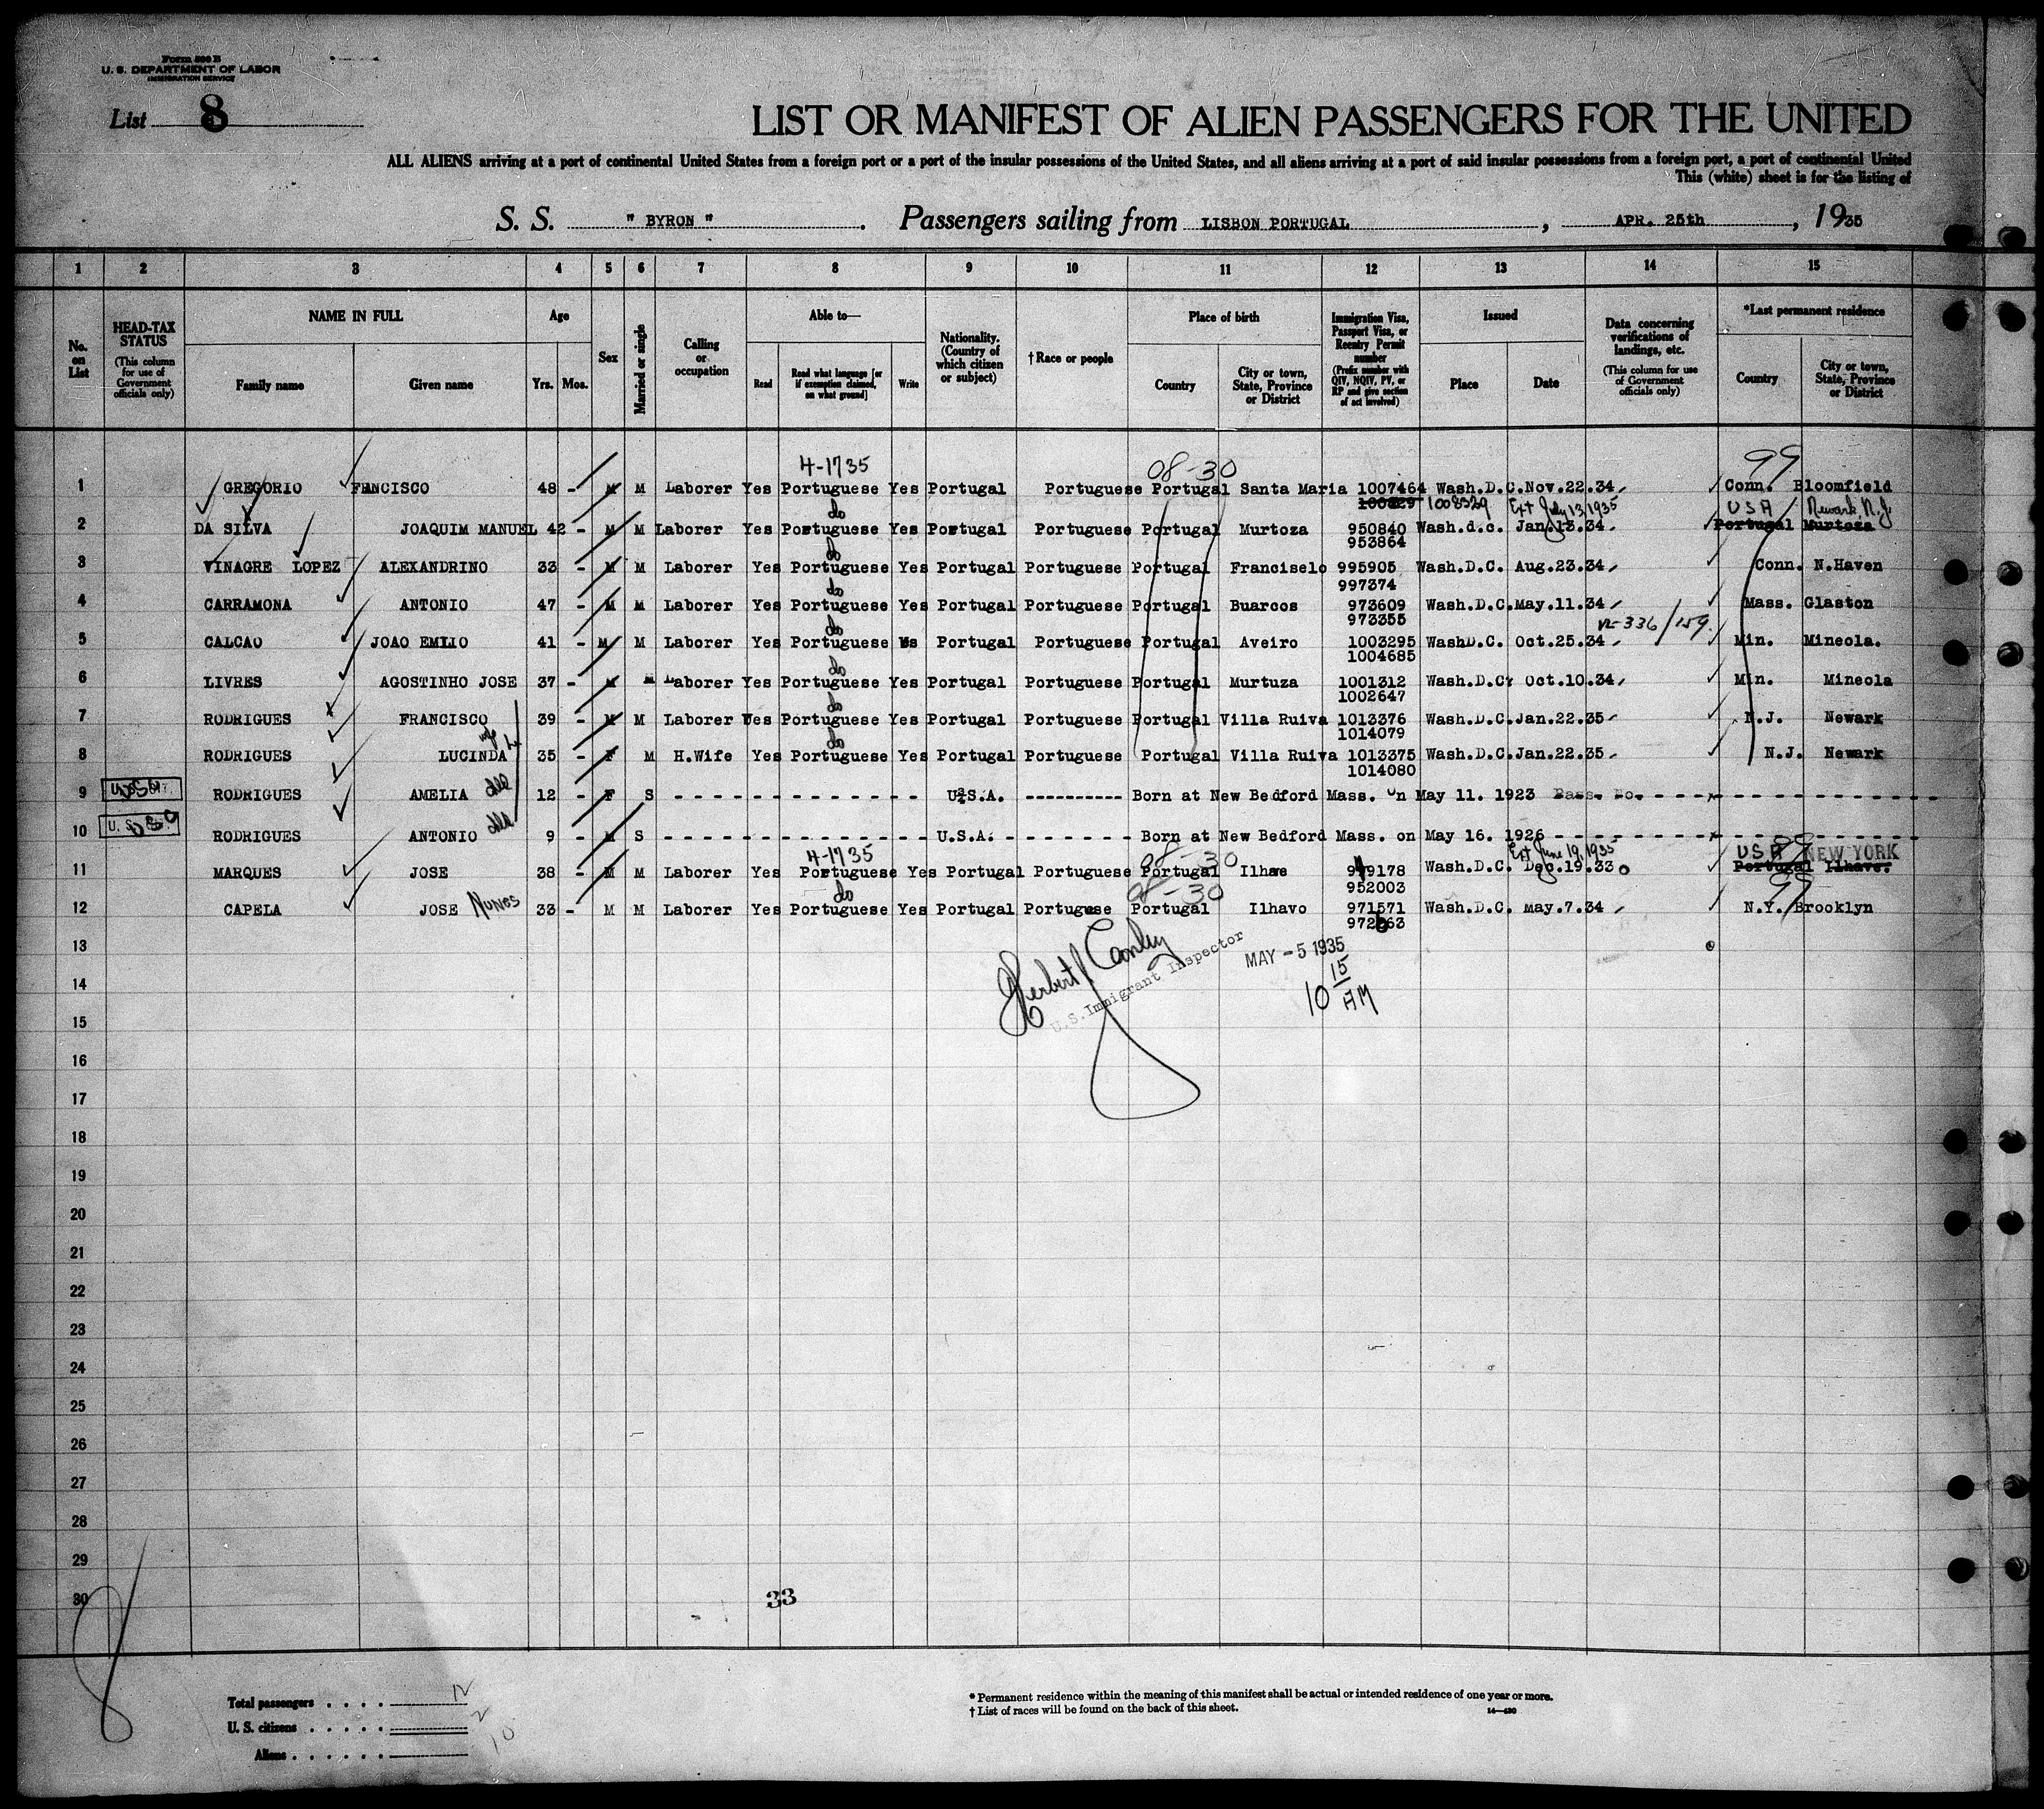 Form 500 B
U. S. DEPARTMENT OF LABOR
IMMIGRATION SERVICE
List 8
LIST OR MANIFEST OF ALIEN PASSENGERS FOR THE UNITED
ALL ALIENS arriving at a port of continental United States from a foreign port or a port of the insular possessions of the United States, and all aliens arriving at a port of said insular possessions from a foreign port, a port of continental United
This (white) sheet is for the listing of
S. S. " BYRON " . Passengers sailing from LISBON PORTUGAL , APR. 25th , 1935
1 2 3 4 5 6 7 8 9 10 11 12 13 14 15
No. on List
HEAD-TAX STATUS
(This column for use of Government officials only)
NAME IN FULL
Family name
Given name
Age
Yrs.
Mos.
Sex
Married or single
Calling or occupation
Able to—
Read
Read what language [or if exemption claimed, on what ground]
Write
Nationality. (Country of which citizen or subject)
† Race or people
Place of birth
Country
City or town, State, Province or District
Immigration Visa, Passport Visa, or Reentry Permit number
(Prefix number with QIV, NQIV, PV, or RP and give section of act involved)
Issued
Place
Date
Data concerning verifications of landings, etc.
(This column for use of Government officials only)
*Last permanent residence
Country
City or town, State, Province or District
4-1735 08-30 99
1 GREGORIO FRNCISCO 48 - M M Laborer Yes Portuguese Yes Portugal Portuguese Portugal Santa Maria 1007464 Wash.D.C.Nov.22.34 Conn. Bloomfield
do 1008329 Ext July 13, 1935 USA Newark, N.J.
2 DA SILVA JOAQUIM MANUEL 42 - M M Laborer Yes Portuguese Yes Portugal Portuguese Portugal Murtoza 950840 Wash.d.c. Jan.13.34 Portugal Murtoza
do 953864
3 VINAGRE LOPEZ ALEXANDRINO 33 - M M Laborer Yes Portuguese Yes Portugal Portuguese Portugal Franciselo 995905 Wash.D.C. Aug.23.34 Conn. N.Haven
do 997374
4 CARRAMONA ANTONIO 47 - M M Laborer Yes Portuguese Yes Portugal Portuguese Portugal Buarcos 973609 Wash.D.C.May.11.34 Mass. Glaston
do 973355 336/159
5 CALCAO JOAO EMILIO 41 - M M Laborer Yes Portuguese Portugal Portuguese Portugal Aveiro 1003295 WashD.C. Oct.25.34 Min. Mineola.
do 1004685
6 LIVRES AGOSTINHO JOSE 37 - M M Laborer Yes Portuguese Yes Portugal Portuguese Portugal Murtuza 1001312 Wash.D.C. Oct.10.34 Min. Mineola
do 1002647
7 RODRIGUES FRANCISCO 39 - M M Laborer Yes Portuguese Yes Portugal Portuguese Portugal Villa Ruiva 1013376 Wash.D.C.Jan.22.35 N.J. Newark
wife do 1014079
8 RODRIGUES LUCINDA 35 - F M H.Wife Yes Portuguese Yes Portugal Portuguese Portugal Villa Ruiva 1013375 Wash.D.C.Jan.22.35 N.J. Newark
1014080
9 RODRIGUES AMELIA 12 - F S - - - U.S.A. - - - Born at New Bedford Mass. on May 11. 1923 Pass. No. - - -
10 RODRIGUES ANTONIO 9 - M S - - - U.S.A. - - - Born at New Bedford Mass. on May 16. 1926 - - -
4-1735 08-30 Ext June 19, 1935 USA 99 NEW YORK
11 MARQUES JOSE 38 - M M Laborer Yes Portuguese Yes Portugal Portuguese Portugal Ilhavo 949178 Wash.D.C. Dec.19.33 Portugal Ilhavo.
do 08-30 952003 99
12 CAPELA JOSE Nunes 33 - M M Laborer Yes Portuguese Yes Portugal Portuguese Portugal Ilhavo 971571 Wash.D.C. May.7.34 N.Y. Brooklyn
13
Herbert J Conley
U.S. Immigrant Inspector
MAY - 5 1935
10 15 AM
14
15
16
17
18
19
20
21
22
23
24
25
26
27
28
29
30
33
8
Total passengers . . . . 12
U. S. citizens . . . . . 2
Aliens . . . . . . 10
* Permanent residence within the meaning of this manifest shall be actual or intended residence of one year or more.
† List of races will be found on the back of this sheet.
14—430